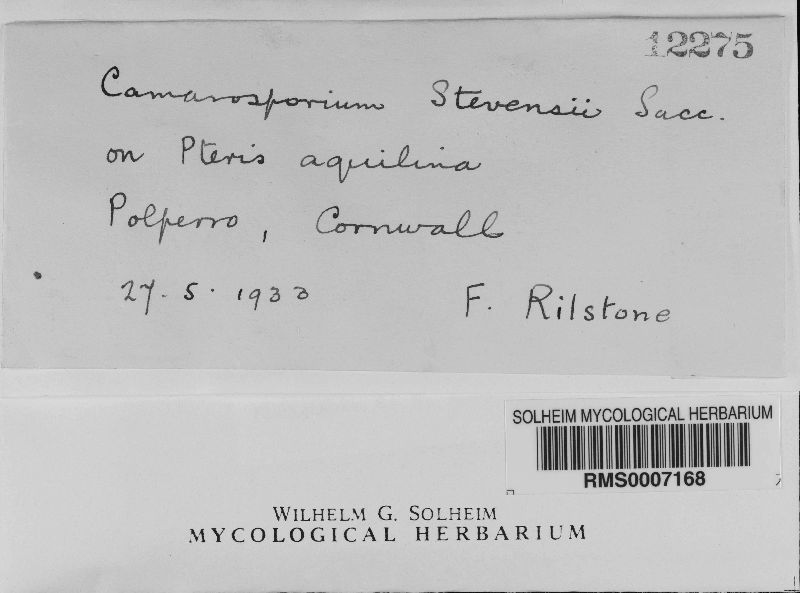 12275
Camarosporium Stevensii Sacc.
on Pteris aquilina
Polperro, Cornwall
27. 5. 1933 F. Rilstone
SOLHEIM MYCOLOGICAL HERBARIUM
RMS0007168
WILHELM G. SOLHEIM
MYCOLOGICAL HERBARIUM